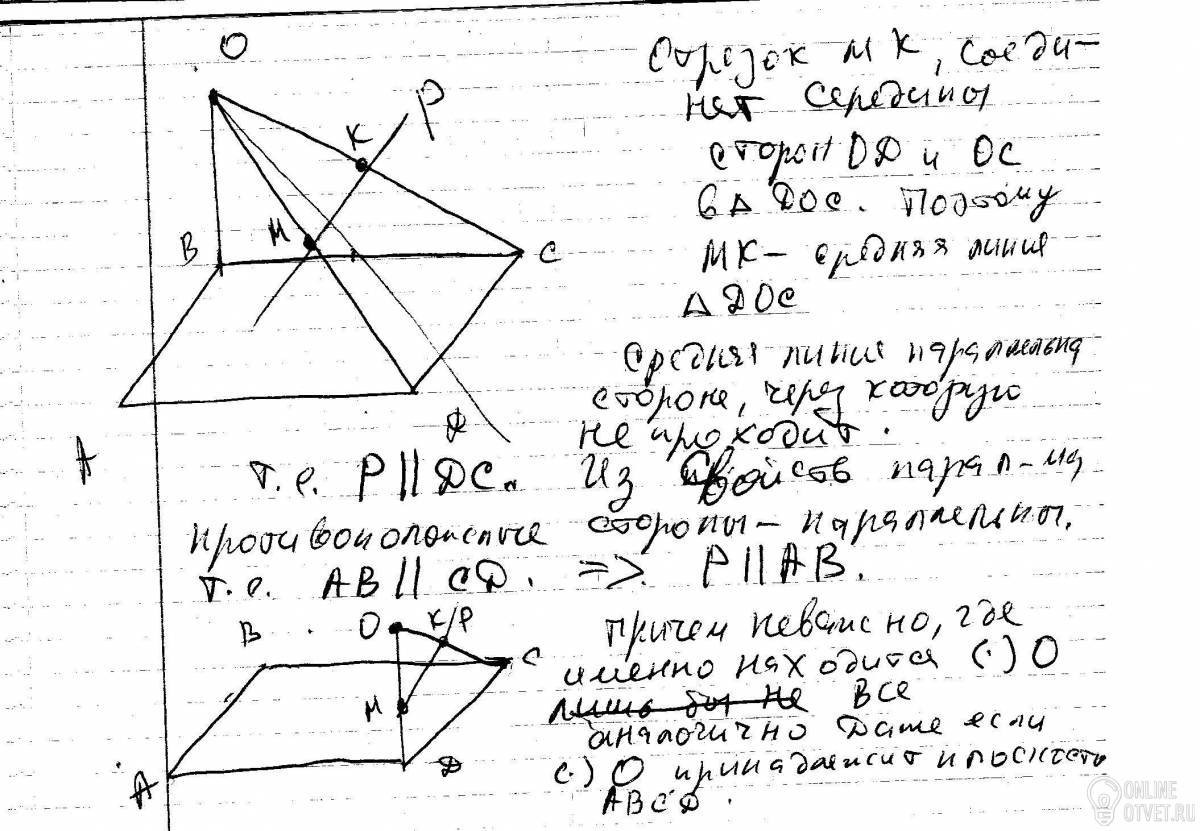 O
K
P
B
M
C
A
D
Отрезок MK, соеди-
няет середины
сторон OD и OC
в △ DOC. Поэтому
MK - средняя линия
△ DOC
Средняя линия параллельна
стороне, через которую
не проходит.
т.е. P || DC. Из свойств парал-ма
противоположные стороны - параллельны.
т.е. AB || CD. => P || AB.
B
O
K/P
C
M
A
D
Причем неважно, где
именно находится (·) O
лишь бы не все
аналогично даже если
(·) O принадлежит плоскости
ABCD.
ONLINE
OTVET.RU